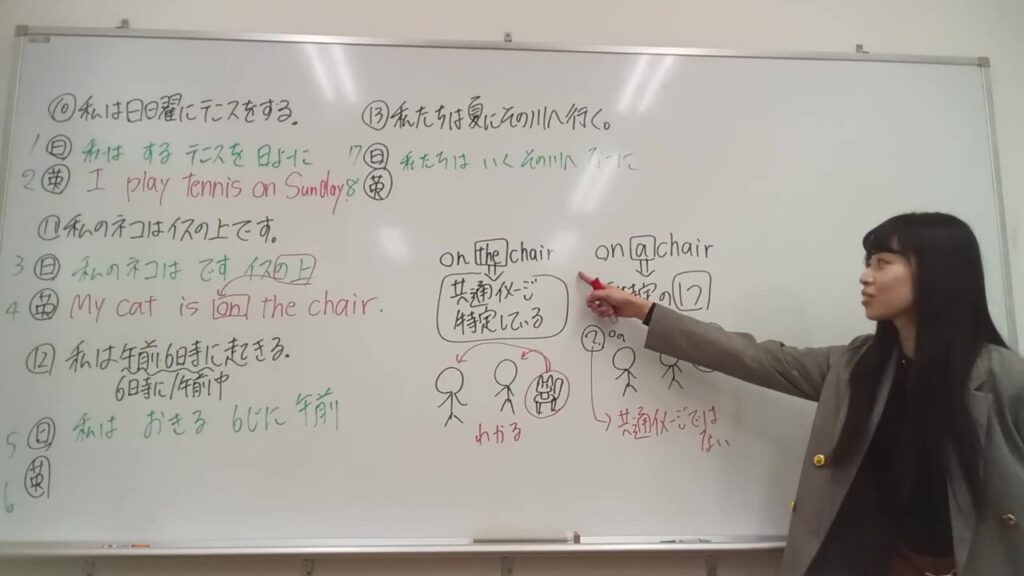 ⑩私は日日曜にテニスをする。
1 ㊐ 私は する テニスを 日ように
2 英 I play tennis on Sunday.
⑪私のネコはイスの上です。
3 ㊐ 私のネコは です イスの上
4 英 My cat is on the chair.
⑫私は午前6日時に起きる。
6日時に/午前中
5 ㊐ 私は おきる 6じに 午前
6 英
⑬私たちは夏にその川へ行く。
7 ㊐ 私たちは いく その川へ なつに
8 英
on the chair
共通イメージ
特定している
わかる
on a chair
特定の1つ
?
共通イメージでは
ない